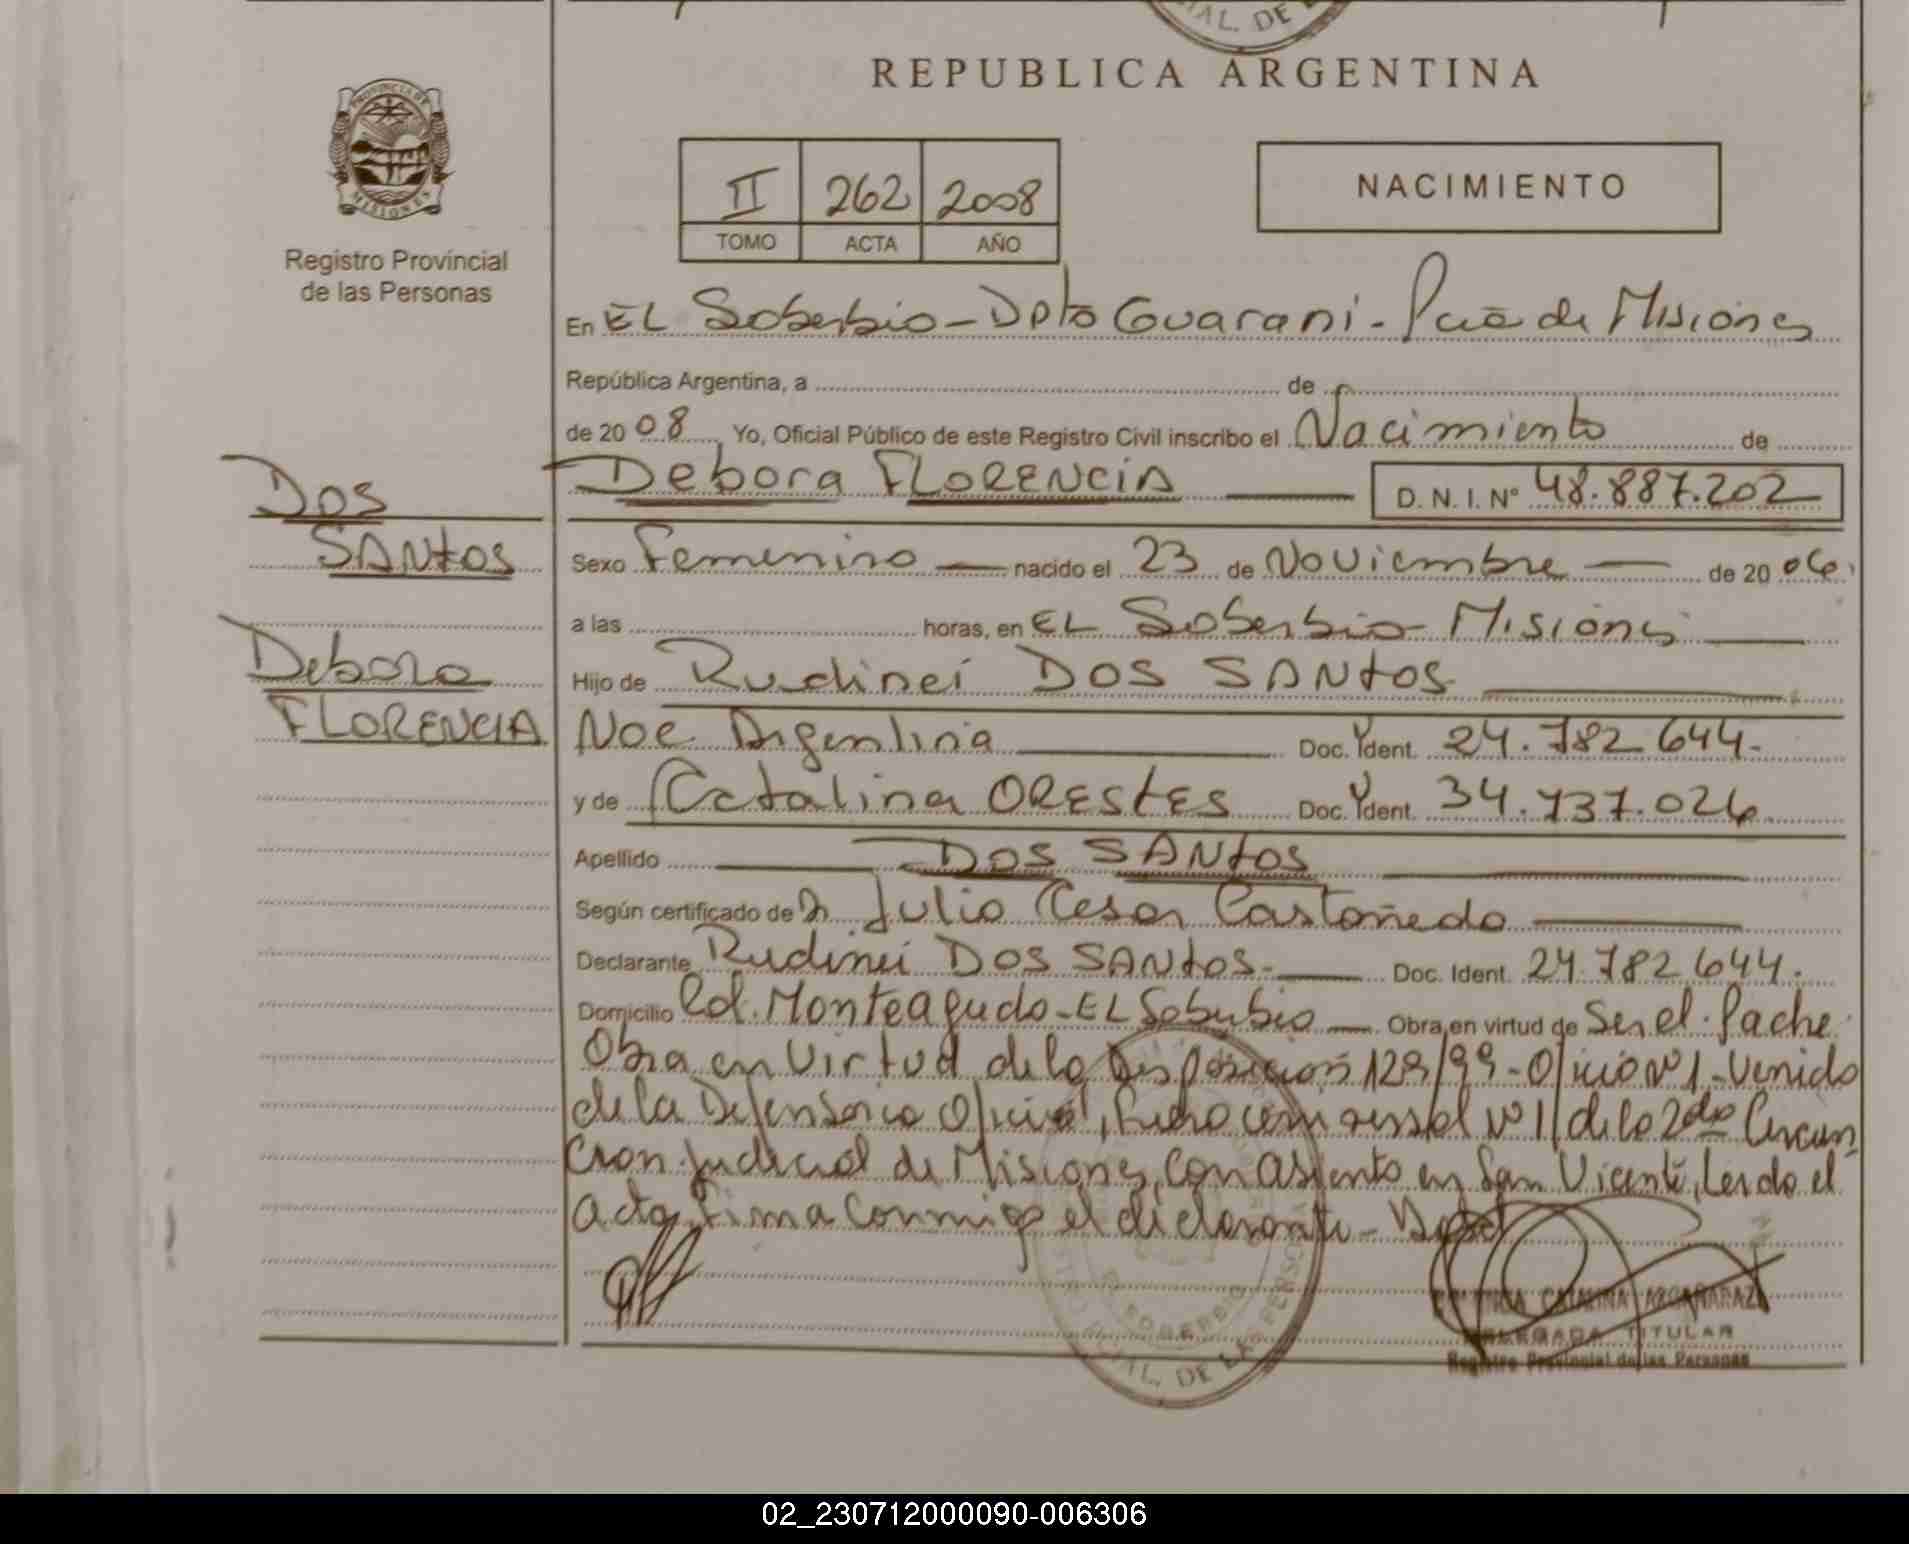 IAL. DE L
REPUBLICA ARGENTINA
PROVINCIA DE
MISIONES
II 262 2008
TOMO ACTA AÑO
NACIMIENTO
Registro Provincial
de las Personas
En EL Soberbio - Dpto Guarani - Pcia de Misiones
República Argentina, a de
de 20 08 Yo, Oficial Público de este Registro Civil inscribo el Nacimiento de
Debora FLORENCIA D. N. I. Nº 48.887.202
DOS
SANTOS
Sexo Femenino nacido el 23 de Noviembre de 20 06
a las horas, en EL Soberbio - Misiones
Debora
FLORENCIA
Hijo de Rudinei DOS SANTOS
Noe Argentina Doc. Ident. 24.782 644.
y de Catalina ORESTES Doc. Ident. 34.737.026
Apellido DOS SANTOS
Según certificado de Dr. Julio Cesar Castañedo
Declarante Rudinei DOS SANTOS Doc. Ident. 24.782 644.
Domicilio Col. Monteagudo - EL Soberbio Obra en virtud de Ser el Padre
Obra en Virtud de la Disposicion 129/99 - Oficio Nº 1 - Venido
de la Defensoria Oficial, Nº 1 de la 2da Circuns
Cion Judicial de Misiones, con asiento en San Vicente, Leido el
acta, Firma Conmigo el declarante -
CATALINA ARGAÑARAZ
DELEGADA TITULAR
Registro Provincial de las Personas
EL SOBERBIO
CIAL. DE LAS PERSONAS
02_230712000090-006306